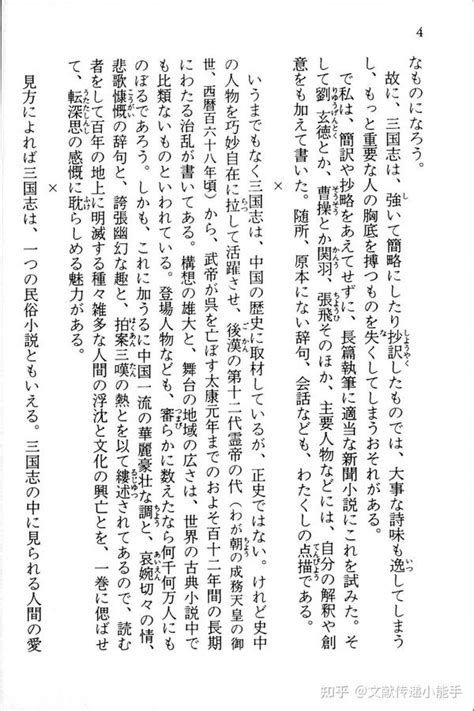 4
なものになろう。
故に、三国志は、強いて簡略にしたり抄訳したものでは、大事な詩味も逸してしまう
し、もっと重要な人の胸底を搏つものを失くしてしまうおそれがある。
で私は、簡訳や抄略をあえてせずに、長篇執筆に適当な新聞小説にこれを試みた。そ
して劉玄徳とか、曹操とか関羽、張飛そのほか、主要人物などには、自分の解釈や創
意をも加えて書いた。随所、原本にない辞句、会話なども、わたくしの点描である。
×
いうまでもなく三国志は、中国の歴史に取材しているが、正史ではない。けれど史中
の人物を巧妙自在に拉して活躍させ、後漢の第十二代霊帝の代（わが朝の成務天皇の御
世、西暦百六十八年頃）から、武帝が呉を亡ぼす太康元年までのおよそ百十二年間の長期
にわたる治乱が書いてある。構想の雄大と、舞台の地域の広さは、世界の古典小説中で
も比類ないものといわれている。登場人物なども、審らかに数えたなら何千何万人にも
のぼるであろう。しかも、これに加うるに中国一流の華麗豪壮な調と、哀婉切々の情、
悲歌慷慨の辞句と、誇張幽幻な趣と、拍案三嘆の熱とを以て縷述されてあるので、読む
者をして百年の地上に明滅する種々雑多な人間の浮沈と文化の興亡とを、一巻に偲ばせ
て、転深思の感慨に耽らしめる魅力がある。
×
見方によれば三国志は、一つの民俗小説ともいえる。三国志の中に見られる人間の愛
知乎 @文献传递小能手